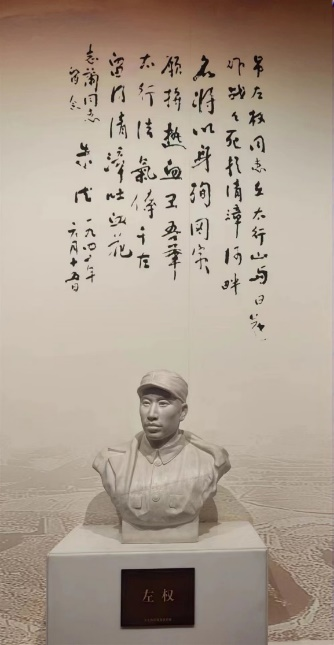 吊左权同志在太行山与日寇
作战战死于清漳河畔
名将以身殉国家
愿拼热血卫吾华
太行浩气传千古
留得清漳吐血花
志兰同志
留念
朱德 一九四二年
六月十五日
左权